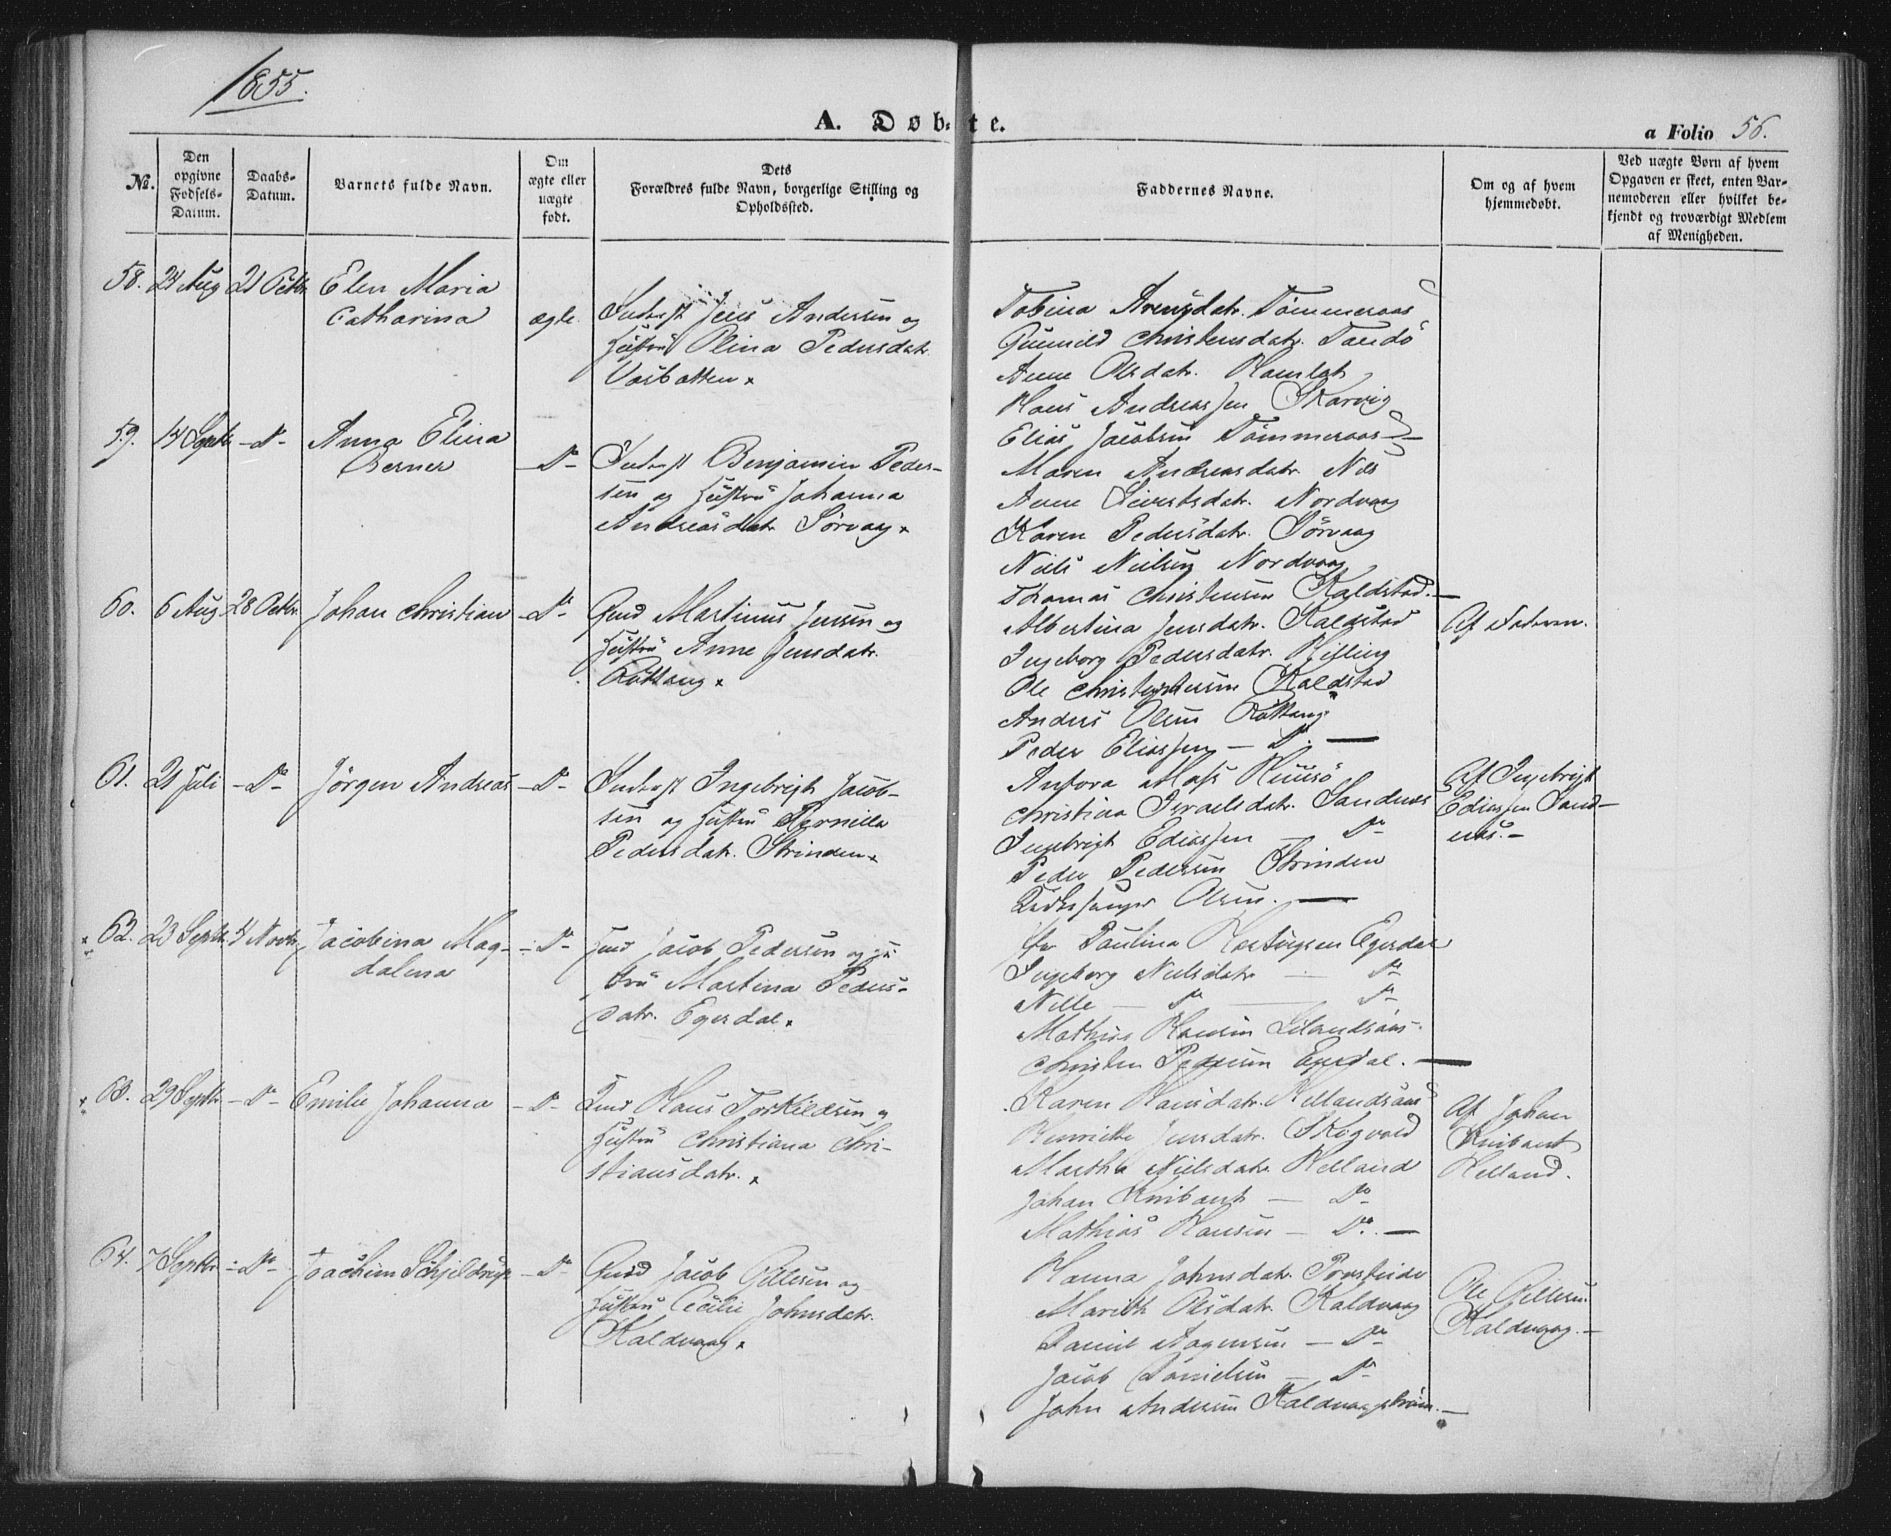 1855.
A. Døbte.
a Folio 56.
No.
Den opgivne Fødsels-Datum.
Daabs-Datum.
Barnets fulde Navn.
Om ægte eller uægte født.
Dets Forældres fulde Navn, borgerlige Stilling og Opholdssted.
Faddernes Navne.
Om og af hvem hjemmedøbt.
Ved uægte Børn af hvem Opgaven er skeet, enten Barnemoderen eller hvilket bekjendt og troværdigt Medlem af Menigheden.
58. 24 Aug 21 Octbr Elen Maria
Catharina
ægte.
Inderst Jens Andersen og
Hustru Olina Pedersdatr.
Tobina Arensdatr. Tømmeraas
Gunnild Christensdatr. Tandö
Anne Olsdatr.
Hans Andreassen Skarvig
Elias Jacobsen Tømmeraas
59. 14 Septbr - Do - Anna Elina
Berner
- Do -
Inderst Benjamin Peder-
sen og Hustru Johanna
Andreasdatr Sørvaag
Maren Andreasdatr. Nes
Anne Sivertsdatr. Nordvaag
Karen Pedersdatr. Sørvaag
Niels Nielsen Nordvaag
Thomas Christensen Kaldstad. -
60. 6 Aug 28 Octbr. Johan Christian - Do -
Gmd Martinus Jensen og
Hustru Anne Jensdatr.
Røttang
Albertina Jensdatr. Kaldstad
Ingeborg Pedersdatr.
Ole Christophersen Kaldstad
Anders Olsen Røttang
Peder Eliassen - Do. -
Af Faderen.
61. 21 Juli - Do - Jörgen Andreas - Do -
Inderst Ingebrigt Jacob-
sen og Hustru Pernella
Pedersdatr. Strinden
Antora Moss Huusö
Christina Israelsdatr. Sandnes
Ingebrigt Ediassen - Do -
Peder Pedersen Strinden
Kirkesanger Olsen. -
Af Ingebrigt
Ediassen Sand-
nes. -
62. 23 Septbr 4 Novbr Jacobina Mag-
dalena
- Do -
Gmd Jacob Pedersen og Hu
stru Martina Peders-
datr. Egerdal
Paulina Hartvigsen Egerdal
Ingeborg Nielsdatr - Do -
Nille - Do - Do -
Mathias Hansen
Christen Pedersen Egerdal. -
63. 29 Septbr - Do - Emilie Johanna - Do -
Gmd Hans Torkildsen og
Hustru Christiana Chri-
stiansdatr.
Karen Hansdatr. Hellandsaas
Henrikke Jensdatr. Skogvold
Martha Nielsdatr Helland
Johan Knibant - Do
Mathias Hansen - Do. -
Af Johan
Knibant
Helland.
64. 7 Septbr - Do - Joachim Schjelderup - Do -
Gmd Jacob Gellesen og
Hustru Cecilie Johnsdatr.
Kaldvaag
Hanna Johnsdatr.
Marith Olsdatr. Kaldvaag
Daniel Aagensen - Do
Jacob Danielsen - Do -
John Andersen Kaldvaagstrøm. -
Ole Gellesen
Kaldvaag. -